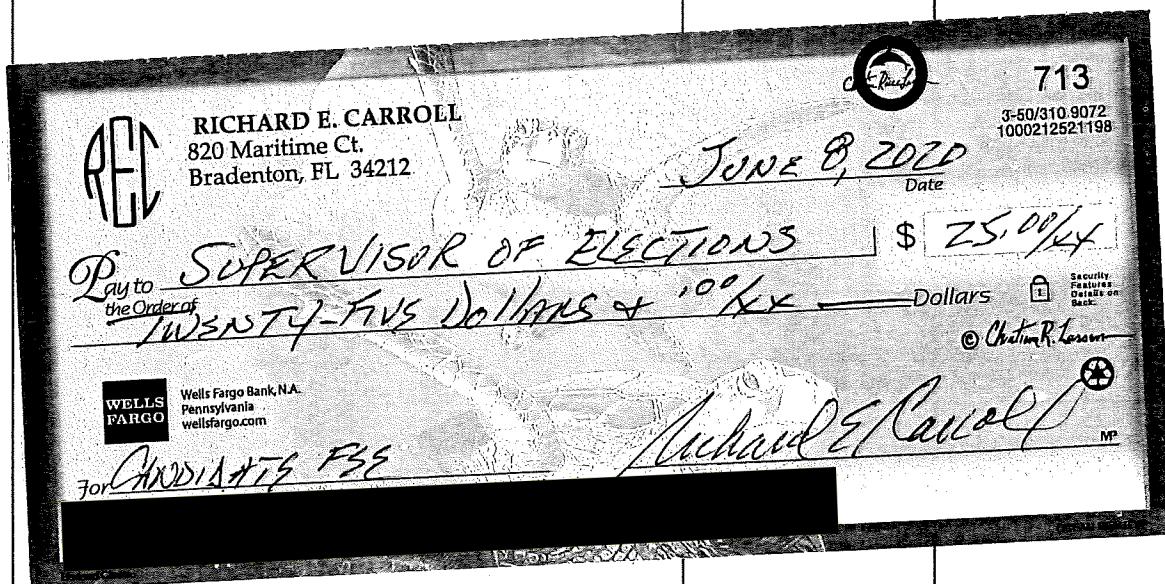 713
3-50/310 9072
1000212521198
REC
RICHARD E. CARROLL
820 Maritime Ct.
Bradenton, FL 34212
JUNE 8, 2020
Date
Pay to the Order of SUPERVISOR OF ELECTIONS $ 25.00/xx
TWENTY-FIVE DOLLARS & .00/xx Dollars
Security Features Details on Back.
© Christian R. Lassen
WELLS FARGO
Wells Fargo Bank, N.A.
Pennsylvania
wellsfargo.com
For CANDIDATE FEE
Richard E Carroll
MP